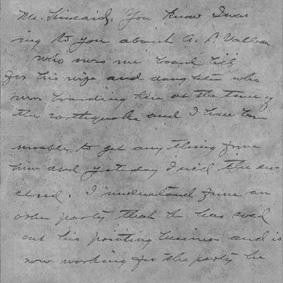 Mr. Kincaid: You know I was
ing to you about A. P. Wallace
who owes me board bill
for his wife and daughter who
were boarding here at the time of
the earthquake and I have been
unable to get any thing from
him and yesterday I rec'd the en
closed. I understand from an
other party that he has sold
out his printing business and is
now working for the party he